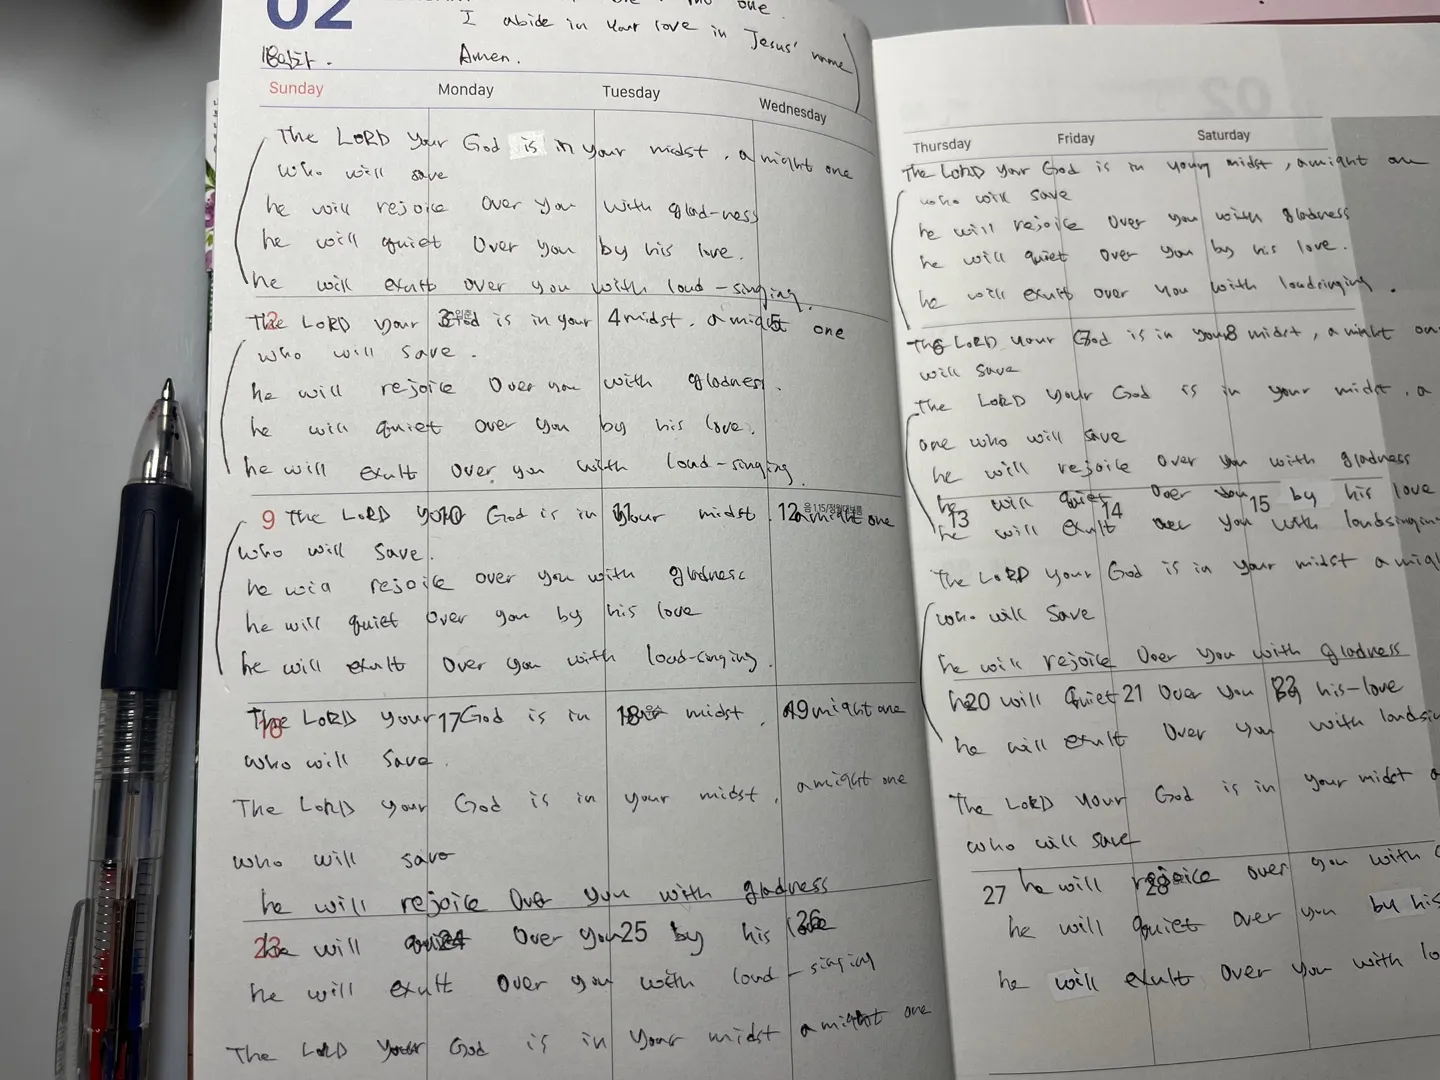 02
one.
I abide in your love in Jesus' name
Amen.
Sunday Monday Tuesday Wednesday
The LORD your God is in your midst, a might one
who will save
he will rejoice over you with glad-ness
he will quiet over you by his love.
he will exult over you with loud-singing.
2 3 4 5
The LORD your God is in your midst. a might one
who will save.
he will rejoice over you with gladness.
he will quiet over you by his love.
he will exult over you with loud-singing.
9 10 11 12 음 1.15/정월대보름
The LORD your God is in your midst. a might one
who will save.
he will rejoice over you with gladness
he will quiet over you by his love
he will exult over you with loud-singing.
16 17 18 19
The LORD your God is in midst. a might one
who will save.
The LORD your God is in your midst. a might one
who will save
he will rejoice over you with gladness
23 24 25 26
he will quiet over you by his love
he will exult over you with loud-singing
The LORD your God is in your midst a might one
Thursday Friday Saturday
The LORD your God is in your midst, a might on
who will save
he will rejoice over you with gladness
he will quiet over you by his love.
he will exult over you with loudsinging.
6 7 8
The LORD your God is in your midst, a might on
will save
The LORD your God is in your midst. a
one who will save
he will rejoice over you with gladness
he will quiet over you by his love
13 14 15
he will exult over you with loudsinging
The LORD your God is in your midst a migh
who will save
he will rejoice over you with gladness
20 21 22
he will quiet over you by his-love
he will exult over you with loudsin
The LORD your God is in your midst a
who will save
27 28
he will rejoice over you with
he will quiet over you by his
he will exult over you with lo